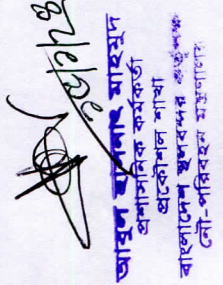 আবুল হাসনাত মাহমুদ
প্রশাসনিক কর্মকর্তা
প্রকৌশল শাখা
বাংলাদেশ স্থলবন্দর কর্তৃপক্ষ
নৌ-পরিবহন মন্ত্রণালয়